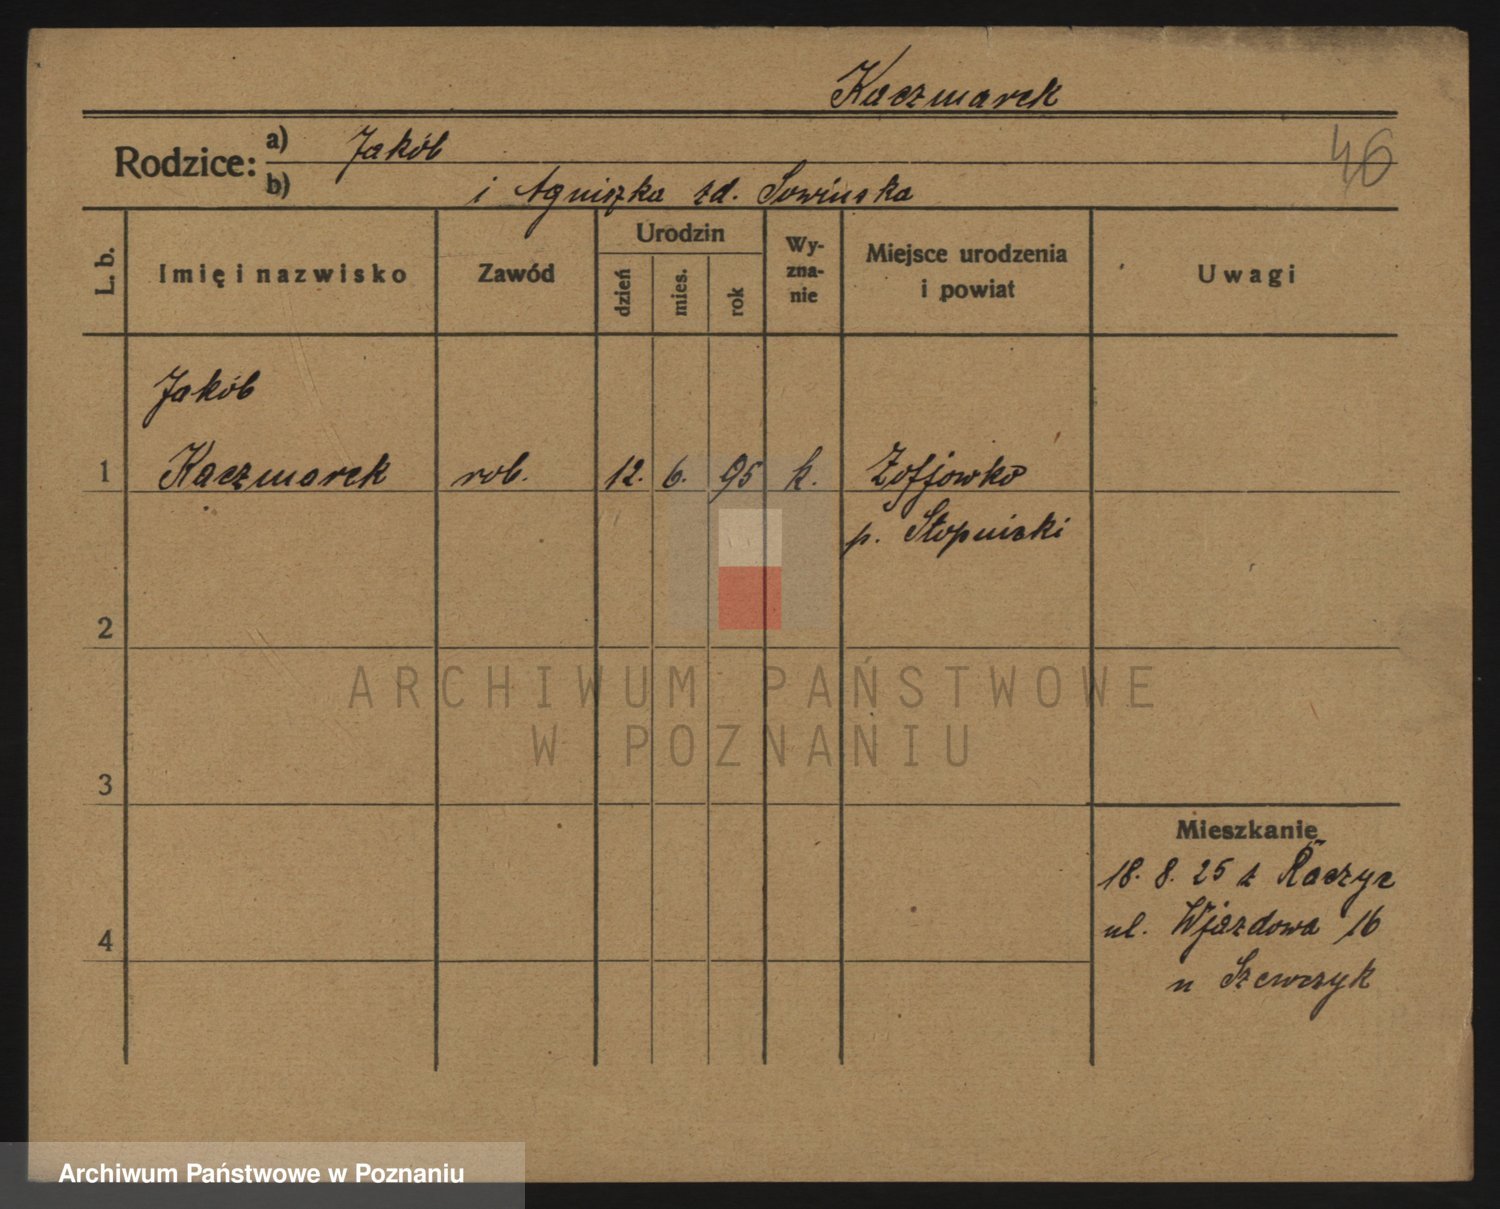 Kaczmarek
46
Rodzice: a) Jakób
b) i Agniszka zd. Sowińska
L. b.
Imię i nazwisko
Zawód
Urodzin
dzień
mies.
rok
Wy-
zna-
nie
Miejsce urodzenia
i powiat
Uwagi
Jakób
1 Kaczmarek rob. 12. 6. 95 k. Zofjowko
p. Stopniski
2
3
4
Mieszkanie
18. 8. 25 z Raczyc
ul. Wjazdowa 16
u Szewczyk
ARCHIWUM PAŃSTWOWE
W POZNANIU
Archiwum Państwowe w Poznaniu